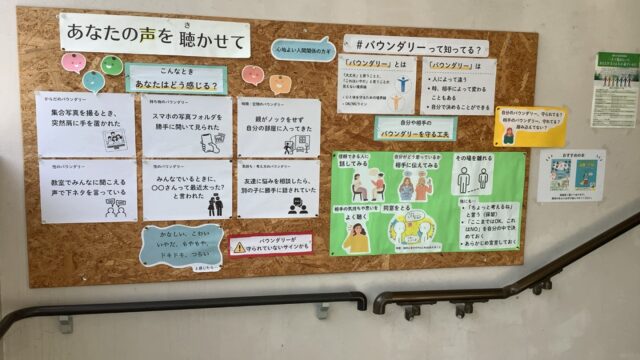 あなたの声を聴かせて
き
心地よい人間関係のカギ
#バウンダリーって知ってる？
こんなとき
あなたはどう感じる？
からだのバウンダリー
集合写真を撮るとき、
突然肩に手を置かれた
持ち物のバウンダリー
スマホの写真フォルダを
勝手に開いて見られた
時間・空間のバウンダリー
親がノックをせず
自分の部屋に入ってきた
性のバウンダリー
教室でみんなに聞こえる
声で下ネタを言っている
性のバウンダリー
みんなでいるときに、
〇〇さんって最近太った？
と言われた
気持ち・考え方のバウンダリー
友達に悩みを相談したら、
別の子に勝手に話されていた
かなしい、こわい
いやだ、もやもや、
ドキドキ、つらい
と感じたら…
バウンダリーが
守られていないサインかも
「バウンダリー」とは
「バウンダリー」は
・人によって違う
・時、相手によって変わる
こともある
・自分で決めることができる
自分や相手の
バウンダリーを守る工夫
信頼できる人に
話してみる
自分がどう思っているか
相手に伝えてみる
その場を離れる
相手の気持ちや思いを
よく聴く
同意をとる
他にも…
・「ちょっと考えるね」
と言う（保留）
・「ここまではOK、これ
はNO」を自分の中で決
めておく
・あらかじめ宣言しておく
自分のバウンダリー、守られてる？
相手のバウンダリー、守れてる？
踏み込んでない？
おすすめの本